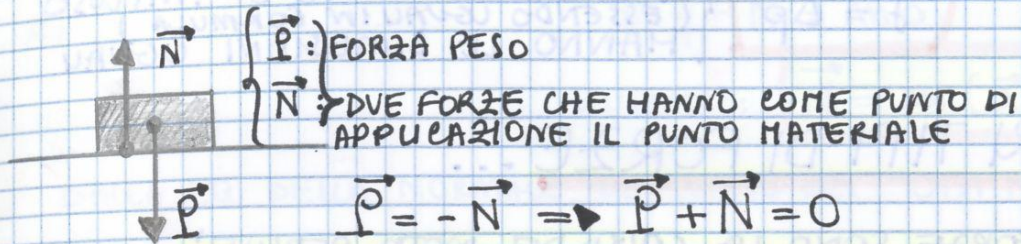 N⃗
P⃗ : FORZA PESO
N⃗ : DUE FORZE CHE HANNO COME PUNTO DI
APPLICAZIONE IL PUNTO MATERIALE
P⃗
P⃗ = - N⃗ => P⃗ + N⃗ = 0